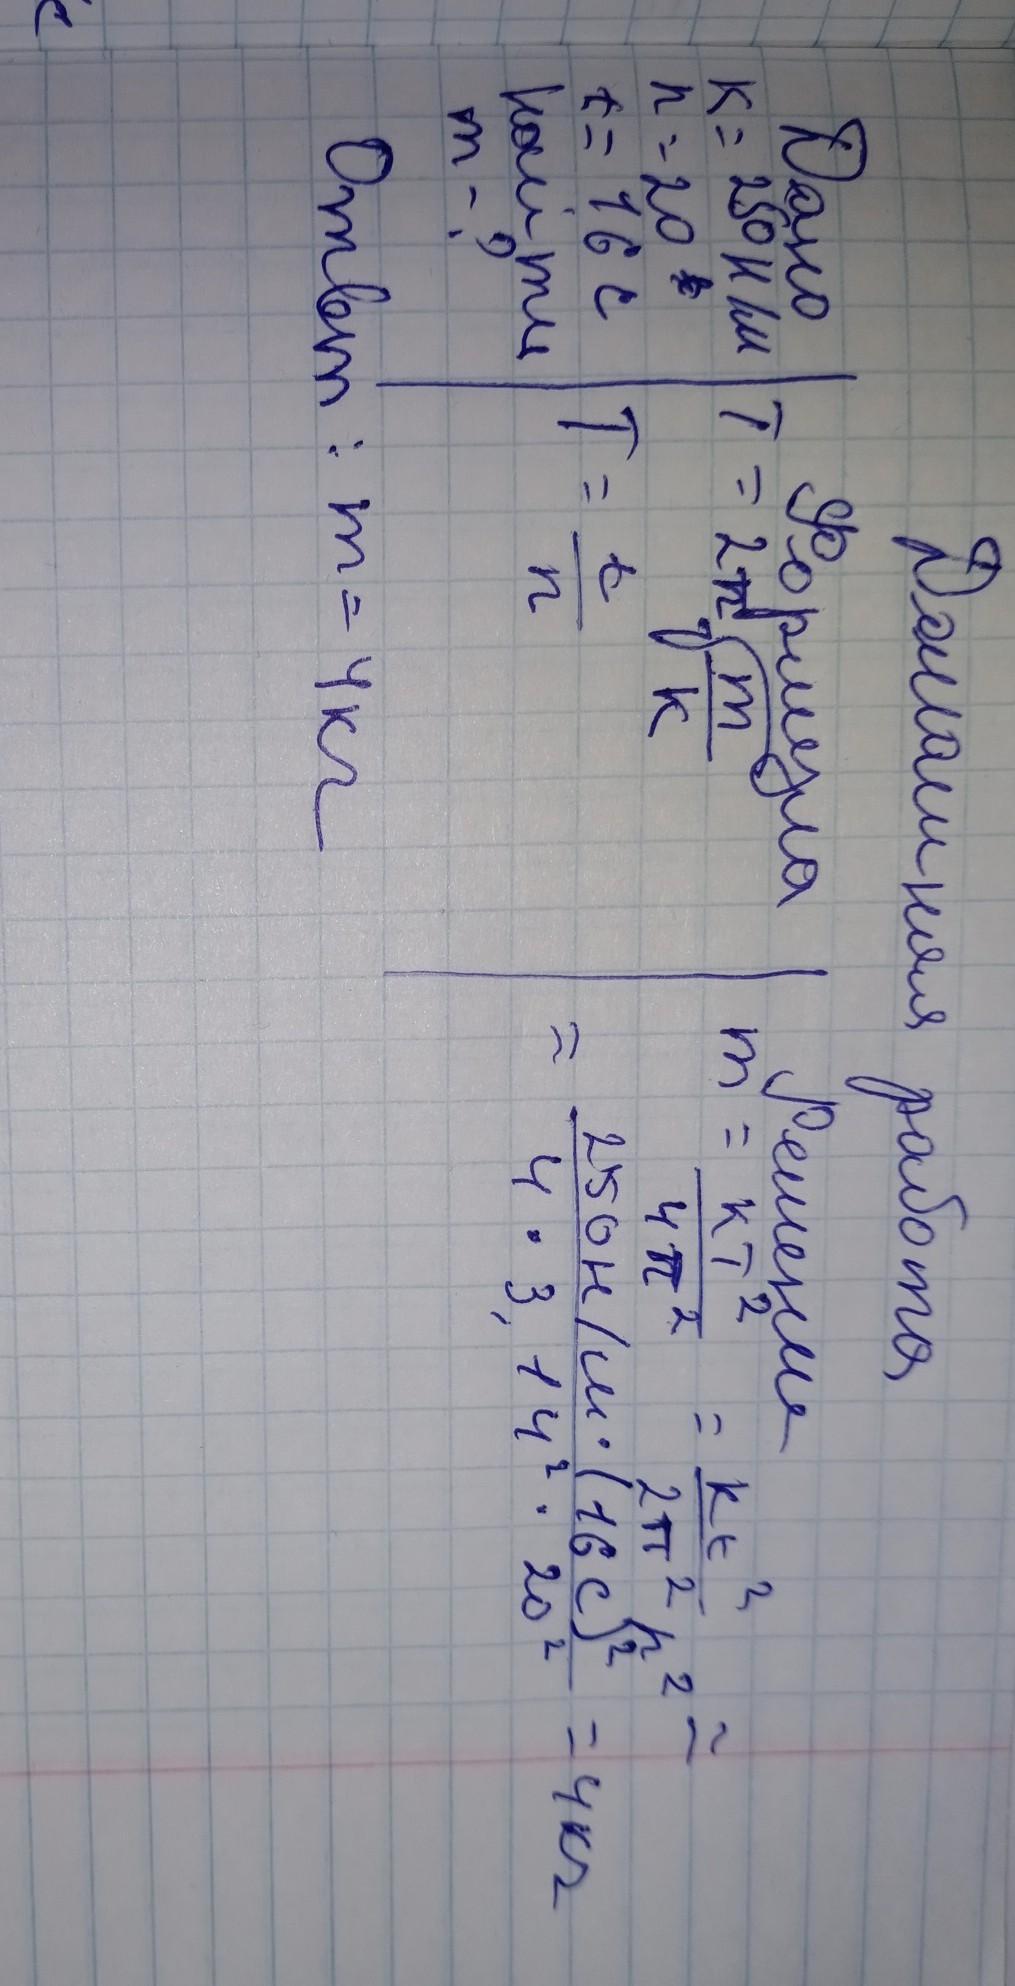 Домашняя работа
Дано
k = 250 Н/м
n = 20
t = 16 с
Найти
m - ?
Формула
T = 2π√(m/k)
T = t/n
Решение
m = kT²/4π² = kt²/2π²n² =
= 250 Н/м · (16 с)²/4 · 3,14² · 20² = 4 кг
Ответ : m = 4 кг